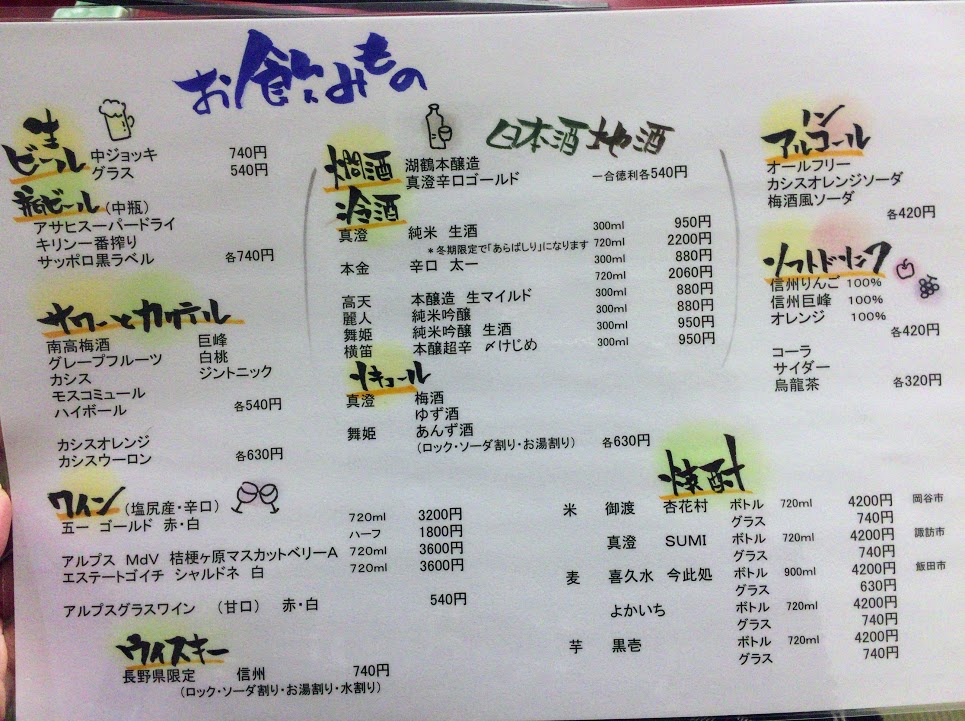 お飲みもの
生ビール
中ジョッキ 740円
グラス 540円
瓶ビール(中瓶)
アサヒスーパードライ
キリン一番搾り
サッポロ黒ラベル 各740円
サワーとカクテル
南高梅酒 巨峰
グレープフルーツ 白桃
カシス ジントニック
モスコミュール
ハイボール 各540円
カシスオレンジ
カシスウーロン 各630円
日本酒 地酒
燗酒
湖鶴本醸造
真澄辛口ゴールド 一合徳利各540円
冷酒
真澄 純米 生酒 300ml 950円
*冬期限定で「あらばしり」になります 720ml 2200円
本金 辛口 太一 300ml 880円
720ml 2060円
高天 本醸造 生マイルド 300ml 880円
麗人 純米吟醸 300ml 880円
舞姫 純米吟醸 生酒 300ml 950円
横笛 本醸超辛 〆けじめ 300ml 950円
リキュール
真澄 梅酒
ゆず酒
舞姫 あんず酒
(ロック・ソーダ割り・お湯割り) 各630円
ノンアルコール
オールフリー
カシスオレンジソーダ
梅酒風ソーダ
各420円
ソフトドリンク
信州りんご 100%
信州巨峰 100%
オレンジ 100%
各420円
コーラ
サイダー
烏龍茶 各320円
ワイン(塩尻産・辛口)
五一 ゴールド 赤・白 720ml 3200円
ハーフ 1800円
アルプス MdV 桔梗ヶ原マスカットベリーA 720ml 3600円
エステートゴイチ シャルドネ 白 720ml 3600円
アルプスグラスワイン (甘口) 赤・白 540円
ウイスキー
長野県限定 信州 740円
(ロック・ソーダ割り・お湯割り・水割り)
焼酎
米 御渡 杏花村 ボトル 720ml 4200円 岡谷市
グラス 740円
真澄 SUMI ボトル 720ml 4200円 諏訪市
グラス 740円
麦 喜久水 今此処 ボトル 900ml 4200円 飯田市
グラス 630円
よかいち ボトル 720ml 4200円
グラス 740円
芋 黒壱 ボトル 720ml 4200円
グラス 740円